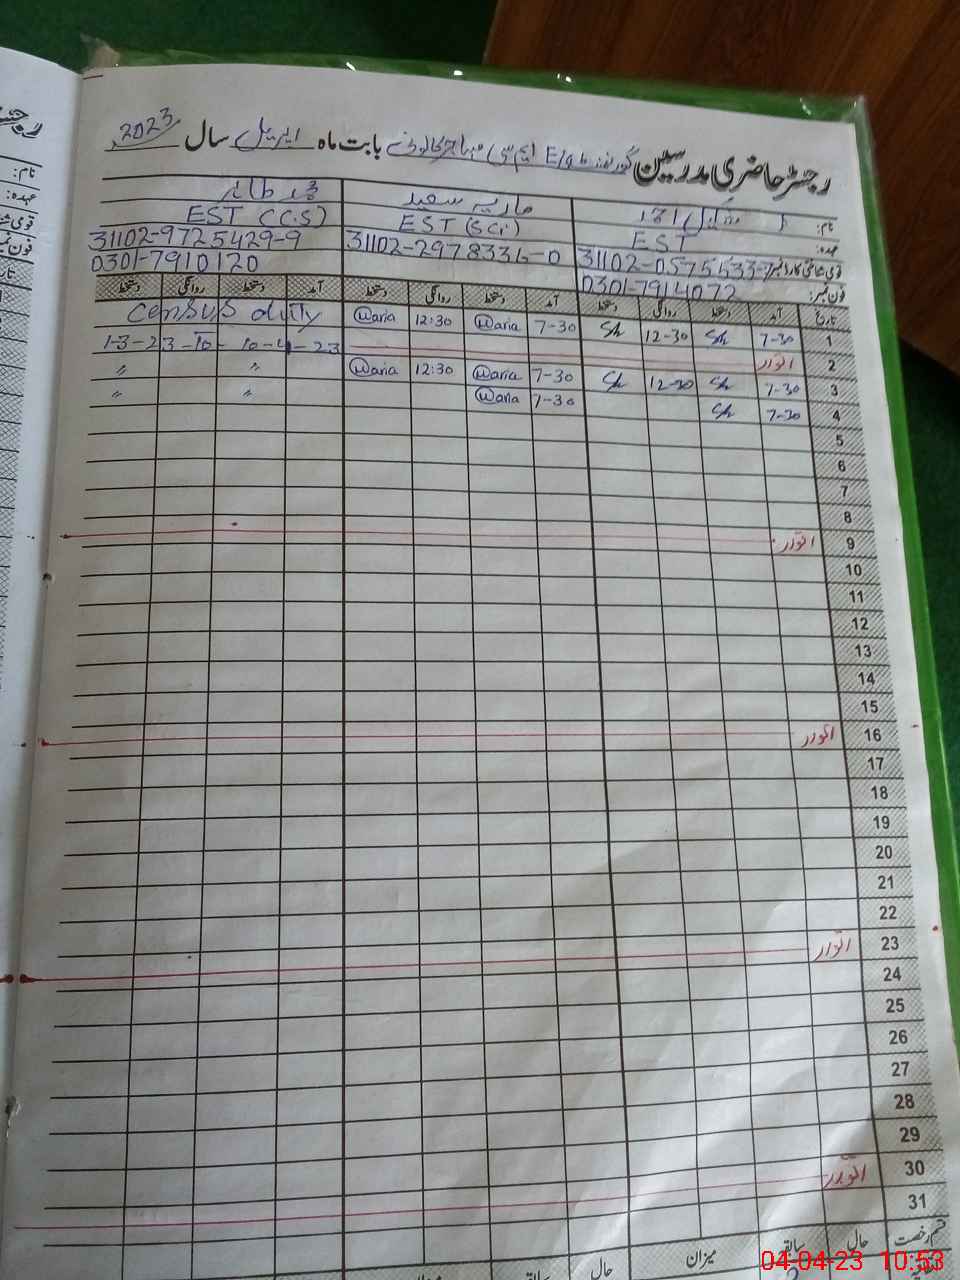 رجسٹر حاضری مدرسین گورنمنٹ E/S ایم سی مہاجر کالونی بابت ماہ اپریل سال 2023
نام: ماریہ سعید محمد طاہر
عہدہ: EST EST (Sci) EST (C.S)
قومی شناختی کارڈ نمبر 31102-0575533-7 31102-2978336-0 31102-9725429-9
فون نمبر: 0301-7914072 0301-7910120
تاریخ آمد دستخط روانگی دستخط آمد دستخط روانگی دستخط آمد دستخط روانگی دستخط
1 7-30 Sh 12-30 Sh 7-30 Maria 12:30 Maria Census duty
2 اتوار 1-3-23 to 10-4-23
3 7-30 Sh 12-30 Sh 7-30 Maria 12:30 Maria " "
4 7-30 Sh 7-30 Maria " "
5
6
7
8
9 اتوار
10
11
12
13
14
15
16 اتوار
17
18
19
20
21
22
23 اتوار
24
25
26
27
28
29
30 اتوار
31
قسم رخصت حال سابقہ میزان حال سابقہ میزان
04-04-23 10:53